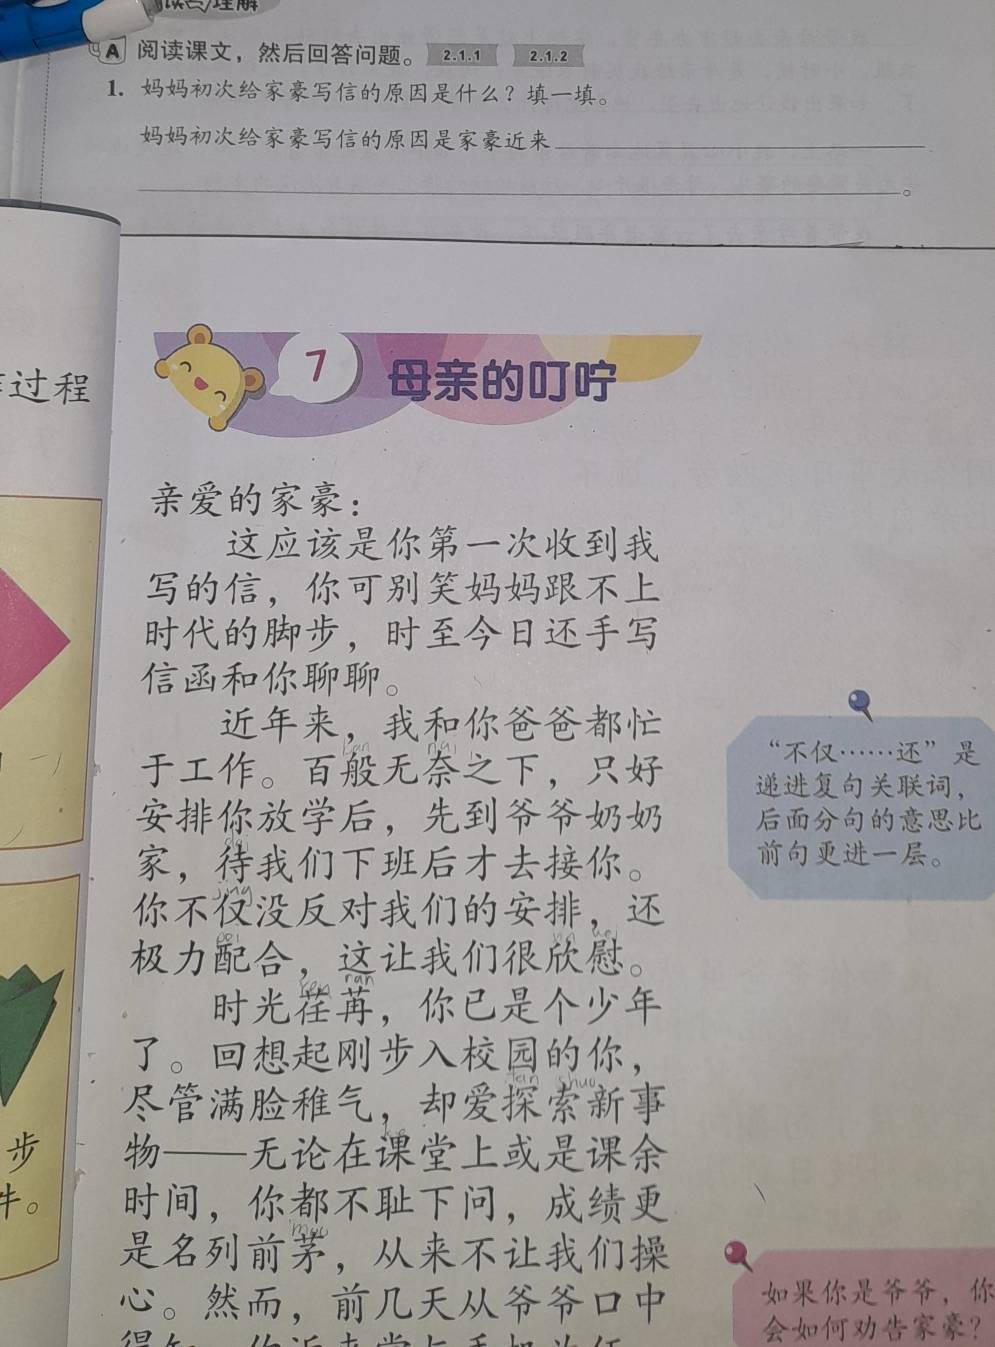 阅读课文，然后回答问题。 2.1.1 2.1.2
1. 妈妈初次给家豪写信的原因是什么？填一填。
妈妈初次给家豪写信的原因是家豪近来
。
过程
7 母亲的叮咛
亲爱的家豪：
这应该是你第一次收到我
写的信，你可别笑妈妈跟不上
时代的脚步，时至今日还手写
信函和你聊聊。
近年来，我和你爸爸都忙
于工作。百般无奈之下，只好
安排你放学后，先到爷爷奶奶
家，待我们下班后才去接你。
你不仅没反对我们的安排，还
极力配合，这让我们很欣慰。
时光荏苒，你已是个少年
了。回想起刚步入校园的你，
尽管满脸稚气，却爱探索新事
物——无论在课堂上或是课余
时间，你都不耻下问，成绩更
是名列前茅，从来不让我们操
心。然而，前几天从爷爷口中
“不仅……还”是
递进复句关联词，
后面分句的意思比
前句更进一层。
步
。
如果你是爷爷，你
会如何劝告家豪？